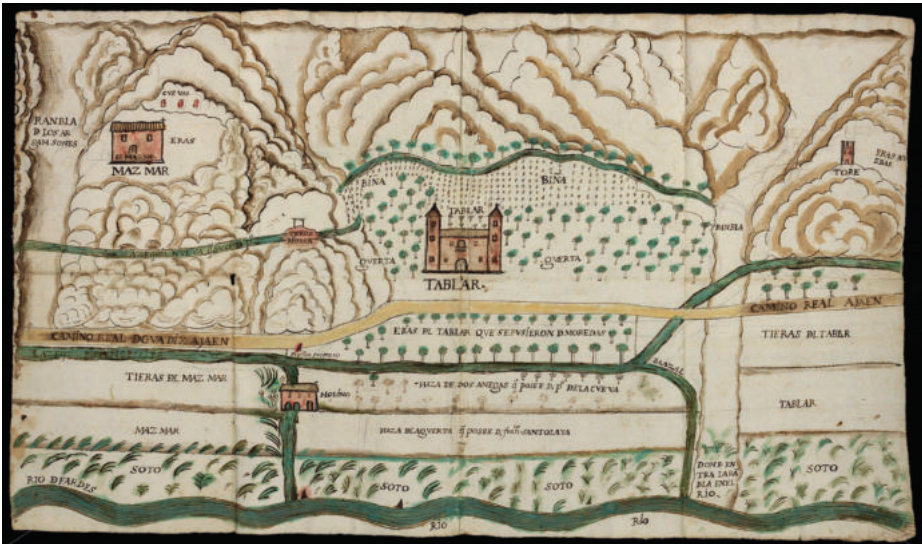 CUEVAS
RANBLA
D LOS AR
DAMSONES
ERAS
MAZ MAR
BIÑA
BIÑA
TORE
TABLAR
RANBLA
QVERTA
QVERTA
TABLAR
CAMINO REAL AJAEN
CAMINO REAL DGVADIX AJAEN
ERAS DL TABLAR QUE SEPUSIERON D MOREDAS
TIERAS DL TABLR
TIERAS DL MAZ MAR
HAZA DE DOS ANEGAS q̃ POSEE D. pº DE LA CUEVA
MOLINO
TABLAR
MAZ MAR
HAZA DLAQVERTA q̃ POSEE D. SANTOLAYA
SOTO
SOTO
SOTO
SOTO
DONDE EN
TRA LARA
BLA ENEL
RÍO
RIO DFARDES
RÍO
RÍO